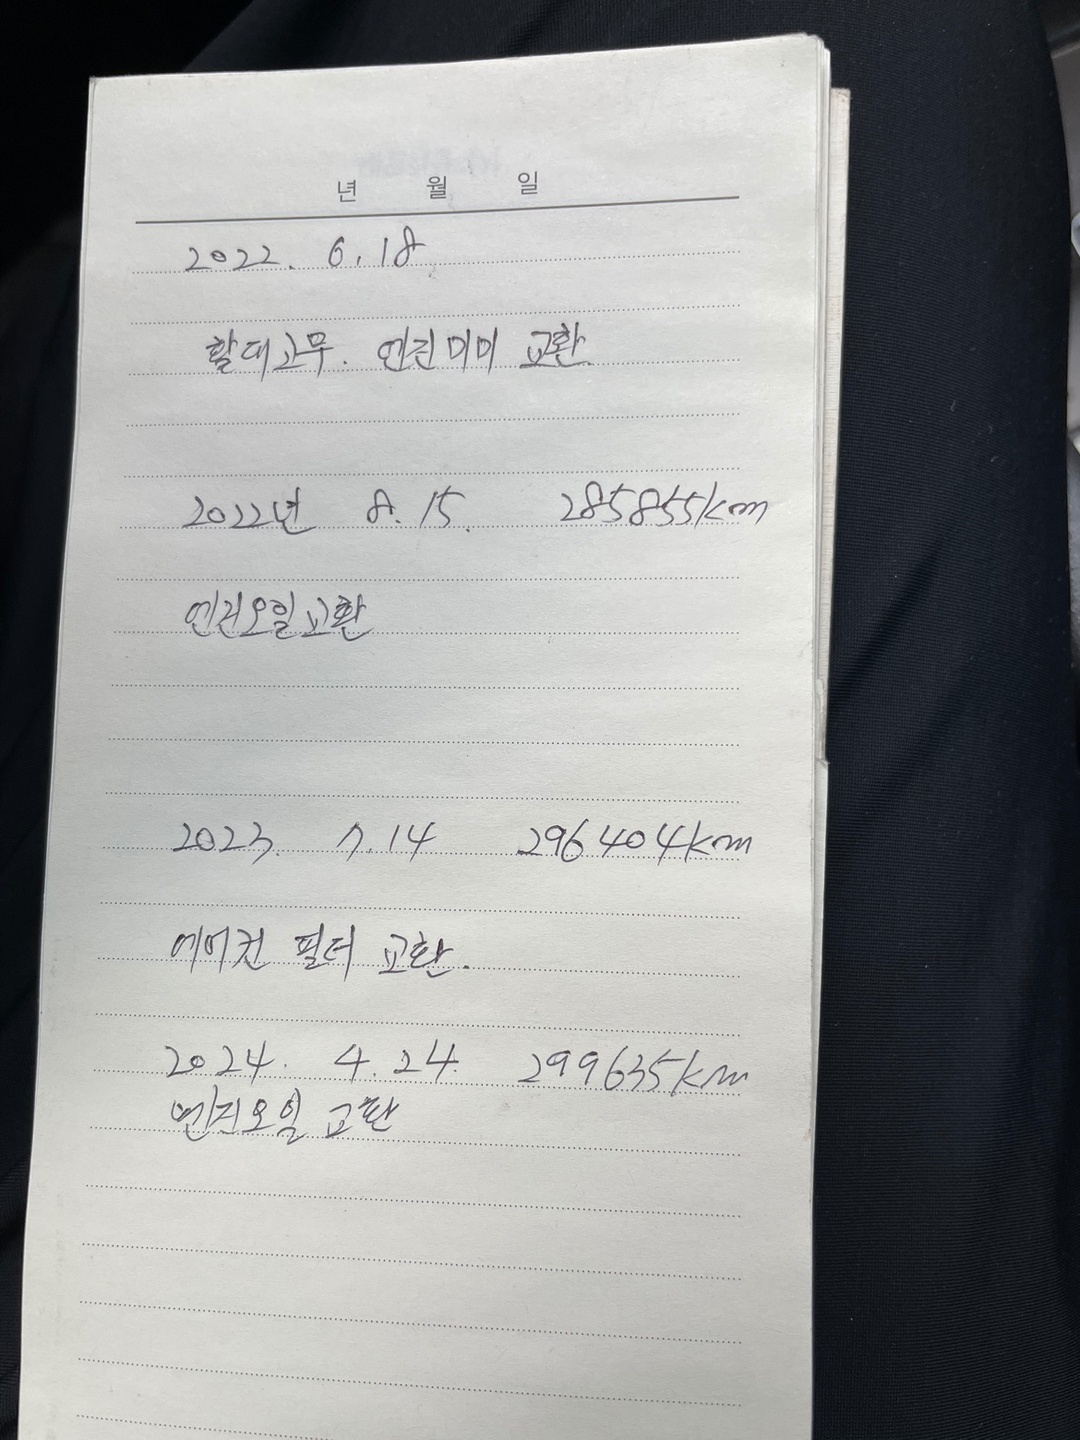 년 월 일
2022. 6. 18
활대고무. 엔진미미 교환.
2022년 8. 15. 285855km
엔진오일교환
2023. 7. 14 296404km
에어컨 필터 교환.
2024. 4. 24. 299635km
엔진오일 교환